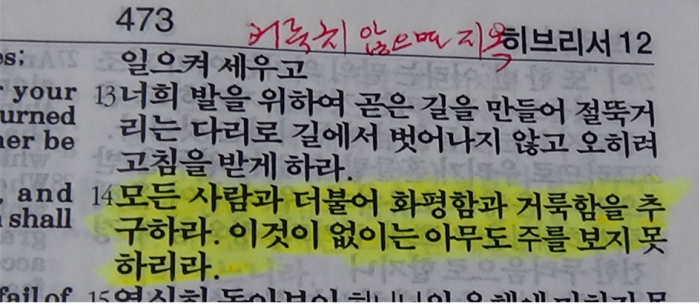 473
거룩치 않으면 지옥
히브리서 12
es;
일으켜 세우고
your
13너희 발을 위하여 곧은 길을 만들어 절뚝거
urned
리는 다리로 길에서 벗어나지 않고 오히려
her be
고침을 받게 하라.
, and
14모든 사람과 더불어 화평함과 거룩함을 추
shall
구하라. 이것이 없이는 아무도 주를 보지 못
하리라.
fail of